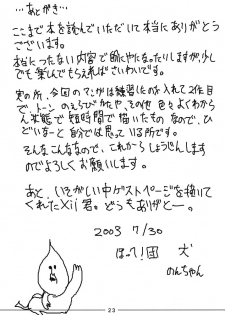 …あとがき…
ここまで本を読んでいただいて本当にありがとう
ございます。
本当につたない内容で恥しやになったりしますが、少し
でも楽しんでもらえればさいわいです。
実の所、今回のマンガは練習に入れて2作目
で、トーンのえらびかたや、その他色々よくわから
ん状態で短時間で描いたものなので、ひ
どいなーと自分では思っている所です。
そんなこんなので、これからしょうじんします
のでよろしくお願いします。
あと、いそがしい中ゲストページを描いて
くれたXij君。どうもありがとー。
2003 7/30
ほっへ!団 犬
のんちゃん
23